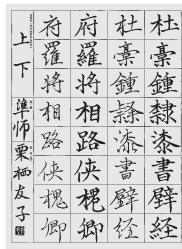 杜稾鍾隸漆書壁經
杜稾鍾隸漆書壁経
府羅將相路俠槐卿
府羅将相路侠槐卿
上下
準師 栗栖友子